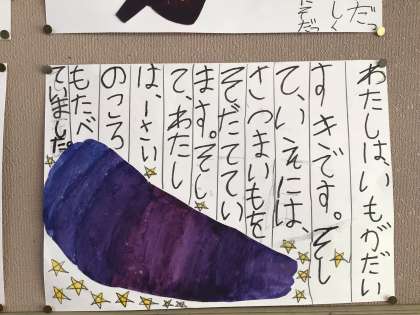 わたしは、いもがだい
すきです。そし
て、いえには、
さつまいもを
そだててい
ます。そし
て、わたし
は、1さい
のころ
もたべ
ていました。